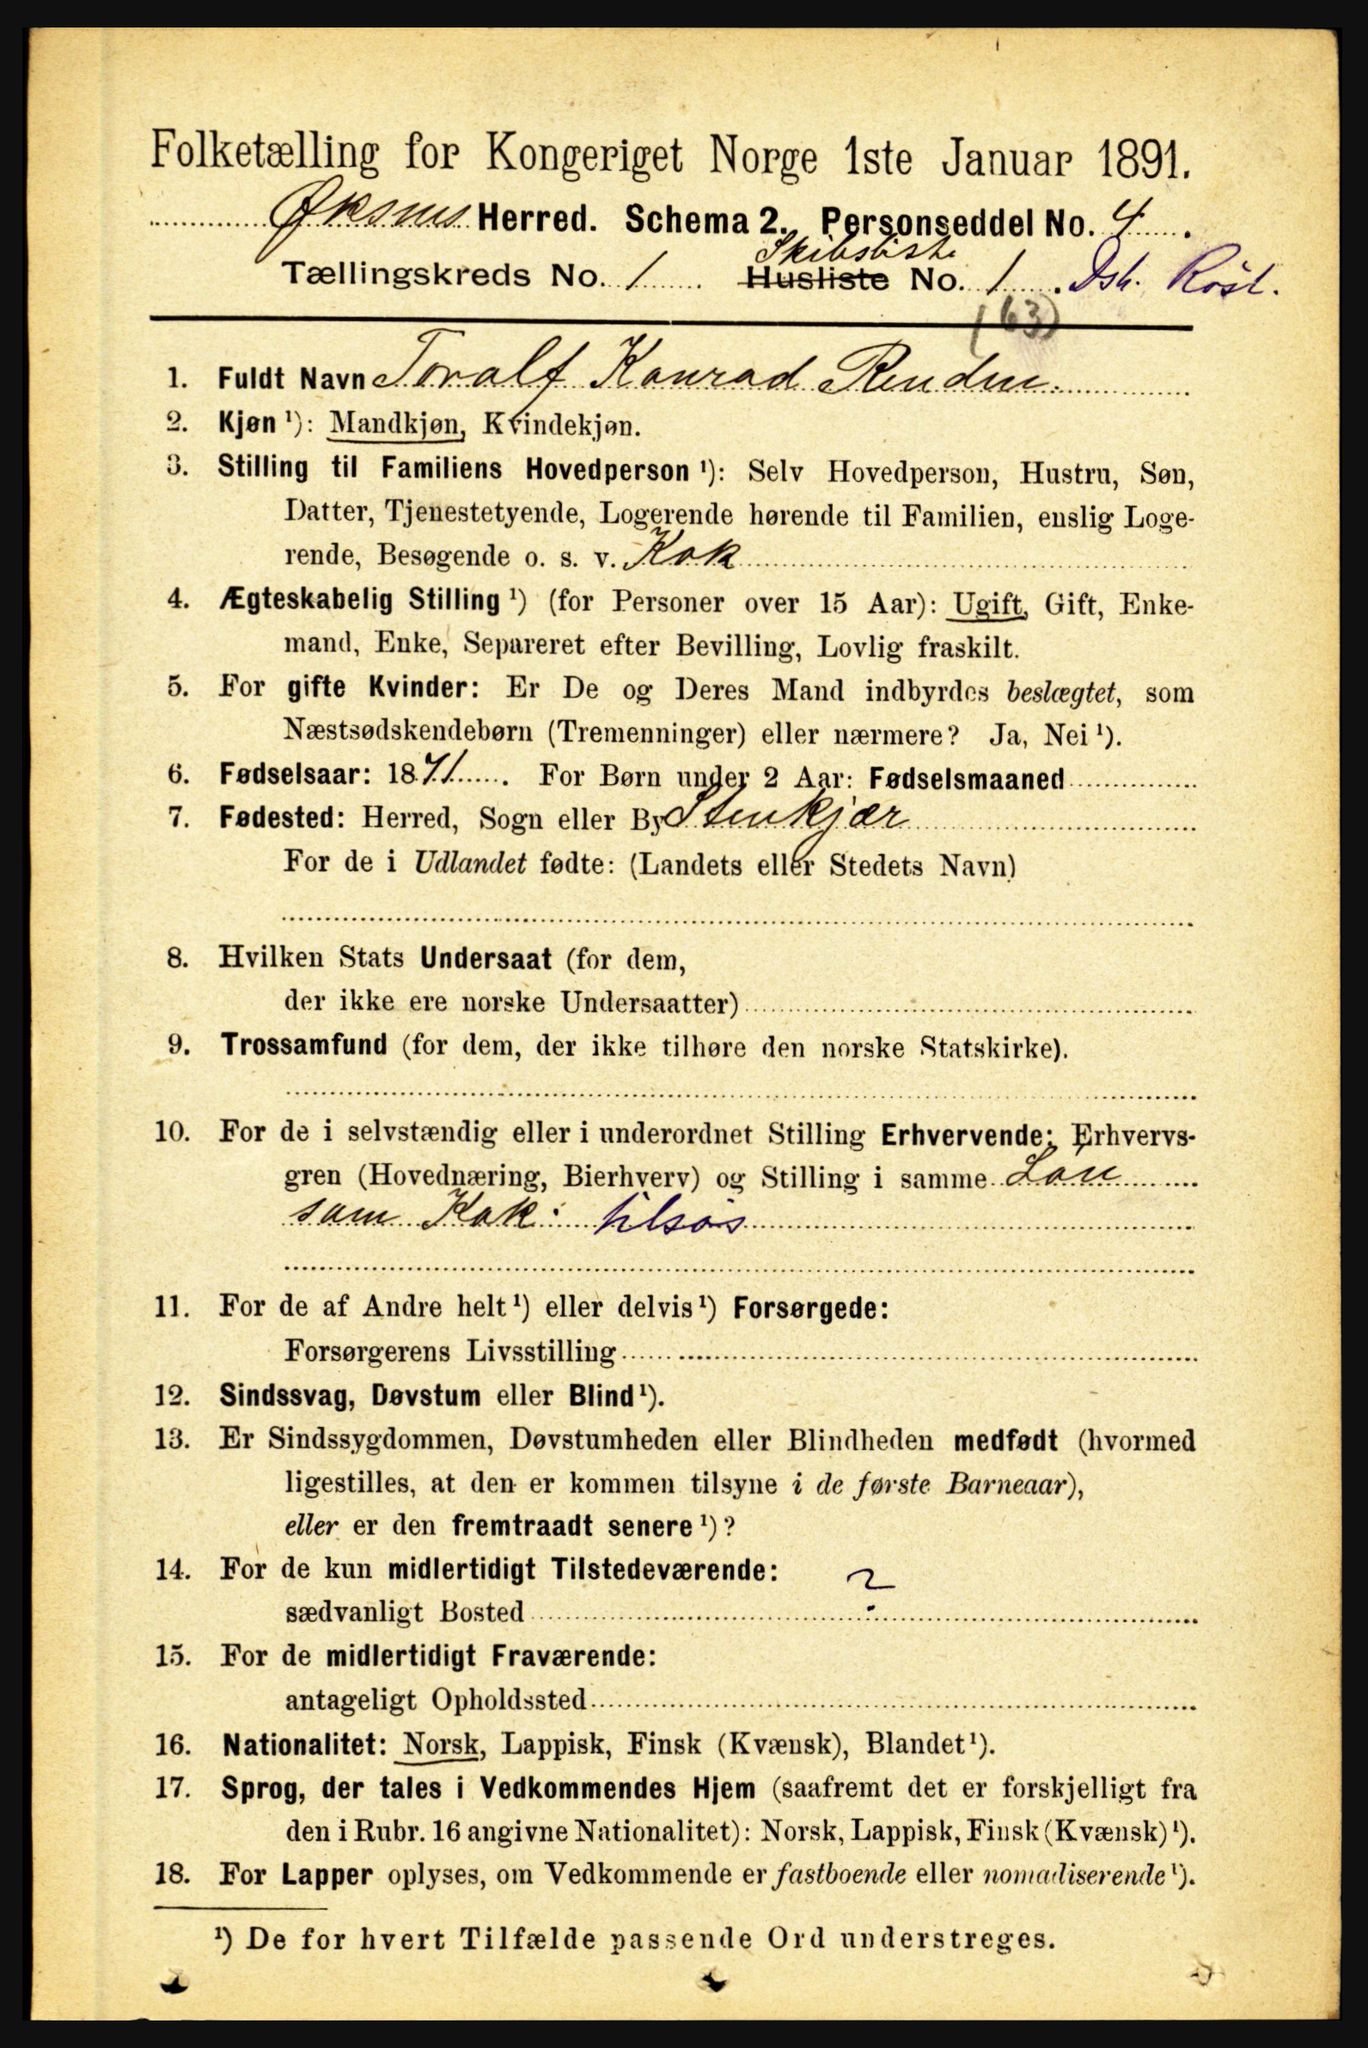 Folketælling for Kongeriget Norge 1ste Januar 1891.
Øksnes Herred. Schema 2. Personseddel No. 4.
Skibsliste
Tællingskreds No. 1 Husliste No. 1. Dsk. Röst.
(63)
1. Fuldt Navn Toralf Konrad
2. Kjøn ¹): Mandkjøn, Kvindekjøn.
3. Stilling til Familiens Hovedperson ¹): Selv Hovedperson, Hustru, Søn,
Datter, Tjenestetyende, Logerende hørende til Familien, enslig Loge-
rende, Besøgende o. s. v. Kok
4. Ægteskabelig Stilling ¹) (for Personer over 15 Aar): Ugift, Gift, Enke-
mand, Enke, Separeret efter Bevilling, Lovlig fraskilt.
5. For gifte Kvinder: Er De og Deres Mand indbyrdes beslægtet, som
Næstsødskendebørn (Tremenninger) eller nærmere? Ja, Nei ¹).
6. Fødselsaar: 1871. For Børn under 2 Aar: Fødselsmaaned
7. Fødested: Herred, Sogn eller By Stenkjær
For de i Udlandet fødte: (Landets eller Stedets Navn)
8. Hvilken Stats Undersaat (for dem,
der ikke ere norske Undersaatter)
9. Trossamfund (for dem, der ikke tilhøre den norske Statskirke).
10. For de i selvstændig eller i underordnet Stilling Erhvervende: Erhvervs-
gren (Hovednæring, Bierhverv) og Stilling i samme Lön
som Kok: tilsös
11. For de af Andre helt ¹) eller delvis ¹) Forsørgede:
Forsørgerens Livsstilling
12. Sindssvag, Døvstum eller Blind ¹).
13. Er Sindssygdommen, Døvstumheden eller Blindheden medfødt (hvormed
ligestilles, at den er kommen tilsyne i de første Barneaar),
eller er den fremtraadt senere ¹)?
14. For de kun midlertidigt Tilstedeværende:
sædvanligt Bosted ?
15. For de midlertidigt Fraværende:
antageligt Opholdssted
16. Nationalitet: Norsk, Lappisk, Finsk (Kvænsk), Blandet ¹).
17. Sprog, der tales i Vedkommendes Hjem (saafremt det er forskjelligt fra
den i Rubr. 16 angivne Nationalitet): Norsk, Lappisk, Finsk (Kvænsk) ¹).
18. For Lapper oplyses, om Vedkommende er fastboende eller nomadiserende ¹).
¹) De for hvert Tilfælde passende Ord understreges.